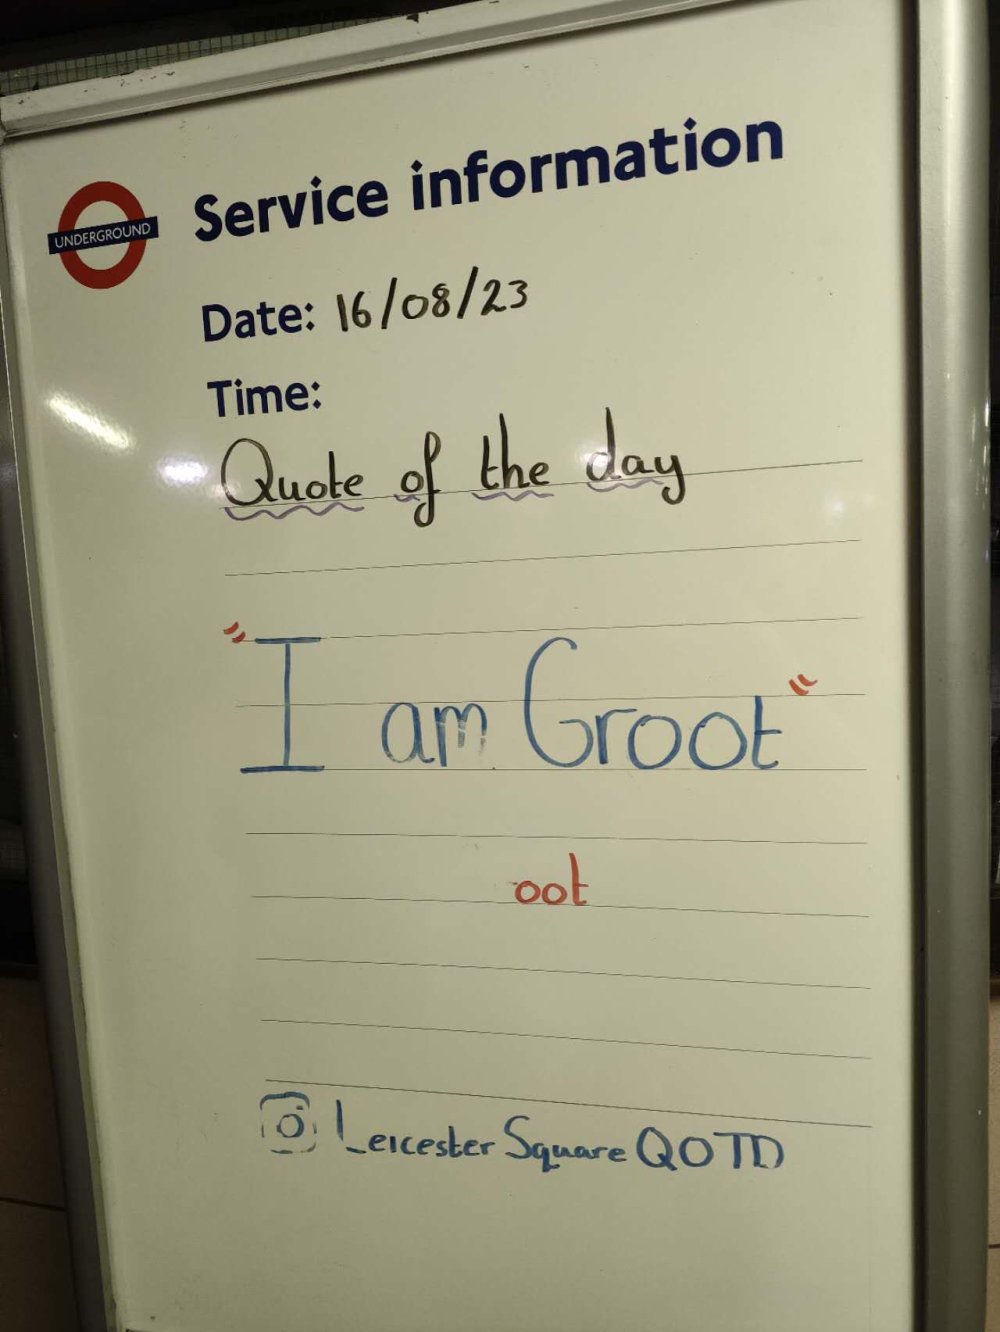 UNDERGROUND
Service information
Date: 16/08/23
Time:
Quote of the day
"I am Groot"
oot
Leicester Square QOTD